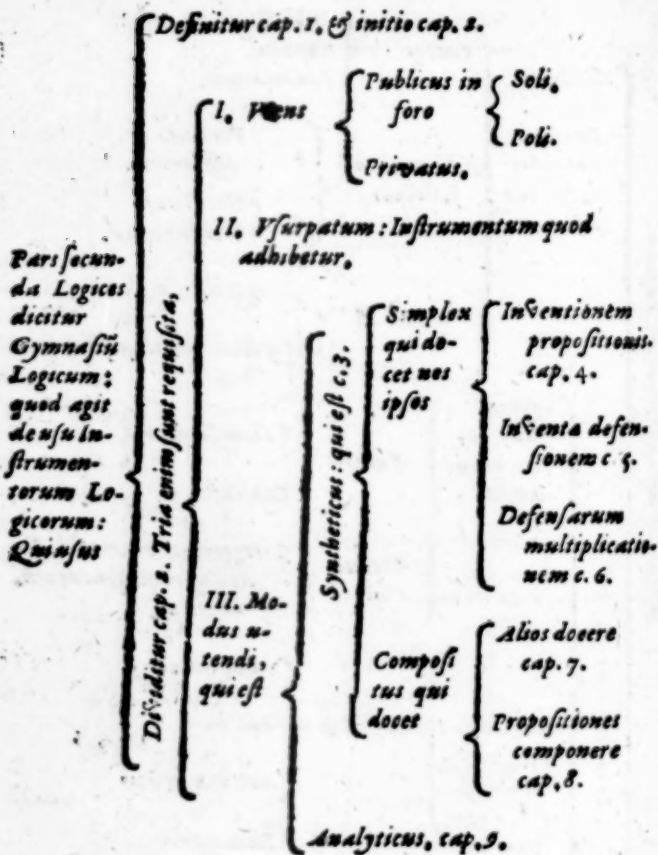 Definitur cap. 1. & initio cap. 2.
Pars ſecun-
da Logices
dicitur
Gymnaſiũ
Logicum:
quod agit
de uſu In-
ſtrumen-
torum Lo-
gicorum:
Qui uſus
Dividitur cap. 2. Tria enim ſunt requiſita,
I. Vtens
Publicus in
foro
Soli.
Poli.
Privatus.
II. Vſurpatum: Inſtrumentum quod
adhibetur.
III. Mo-
dus u-
tendi,
qui eſt
Syntheticus: qui eſt c. 3.
Simplex
qui do-
cet nos
ipſos
Inventionem
propoſitionis.
cap. 4.
Inventa defen-
ſionem c. 5.
Defenſarum
multiplicatio-
nem c. 6.
Compoſi
tus qui
docet
Alios docere
cap. 7.
Propoſitiones
componere
cap. 8.
Analyticus. cap. 9.